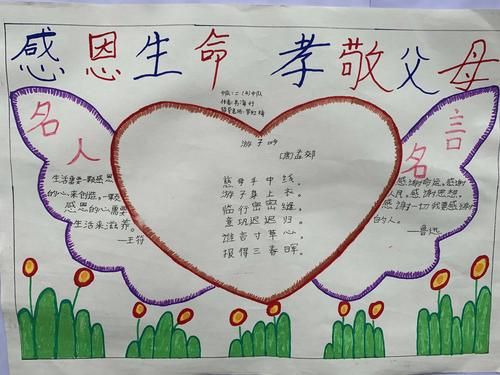 感恩生命 孝敬父母
中队:二(4)中队
游子吟
[唐]孟郊
慈母手中线,
游子身上衣。
临行密密缝,
意恐迟迟归。
谁言寸草心,
报得三春晖。
名人
生活需要一颗感恩
的心来创造,一颗
感恩的心需要
生活来滋养。
—王符
名言
感谢命运,感谢
民,感谢思想,
感谢一切我要感谢
的人。
—鲁迅